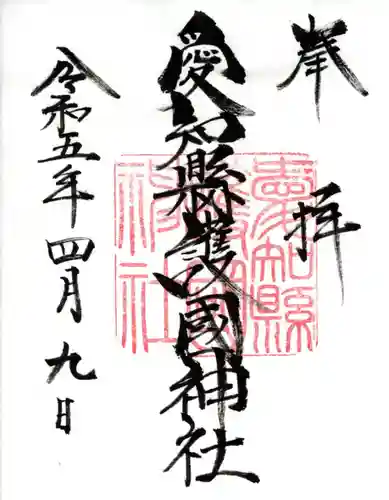 奉拝
愛知縣護國神社
令和五年四月九日
愛知縣護國神社